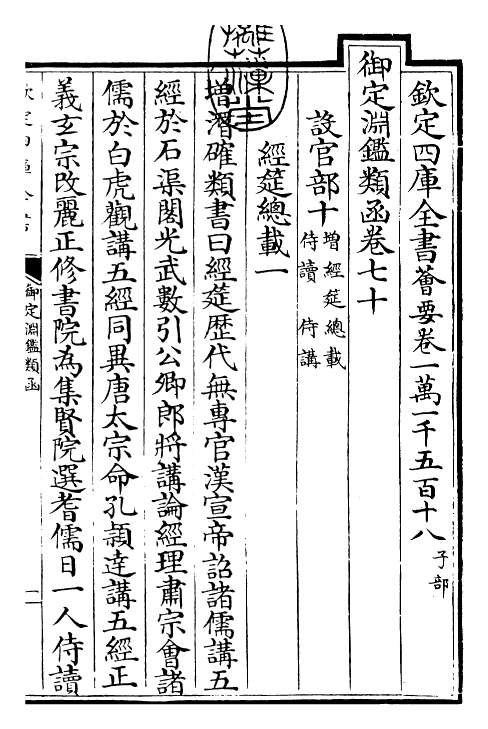 欽定四庫全書薈要卷一萬一千五百十八 子部
御定淵鑑類函卷七十
設官部十 增經筵總載
侍讀 侍講
經筵總載一
增潛確類書曰經筵歷代無專官漢宣帝詔諸儒講五
經於石渠閣光武數引公卿郎將講論經理肅宗會諸
儒於白虎觀講五經同異唐太宗命孔穎達講五經正
義玄宗改麗正修書院為集賢院選耆儒日一人侍讀
欽定四庫全書
御定淵鑑類函
一